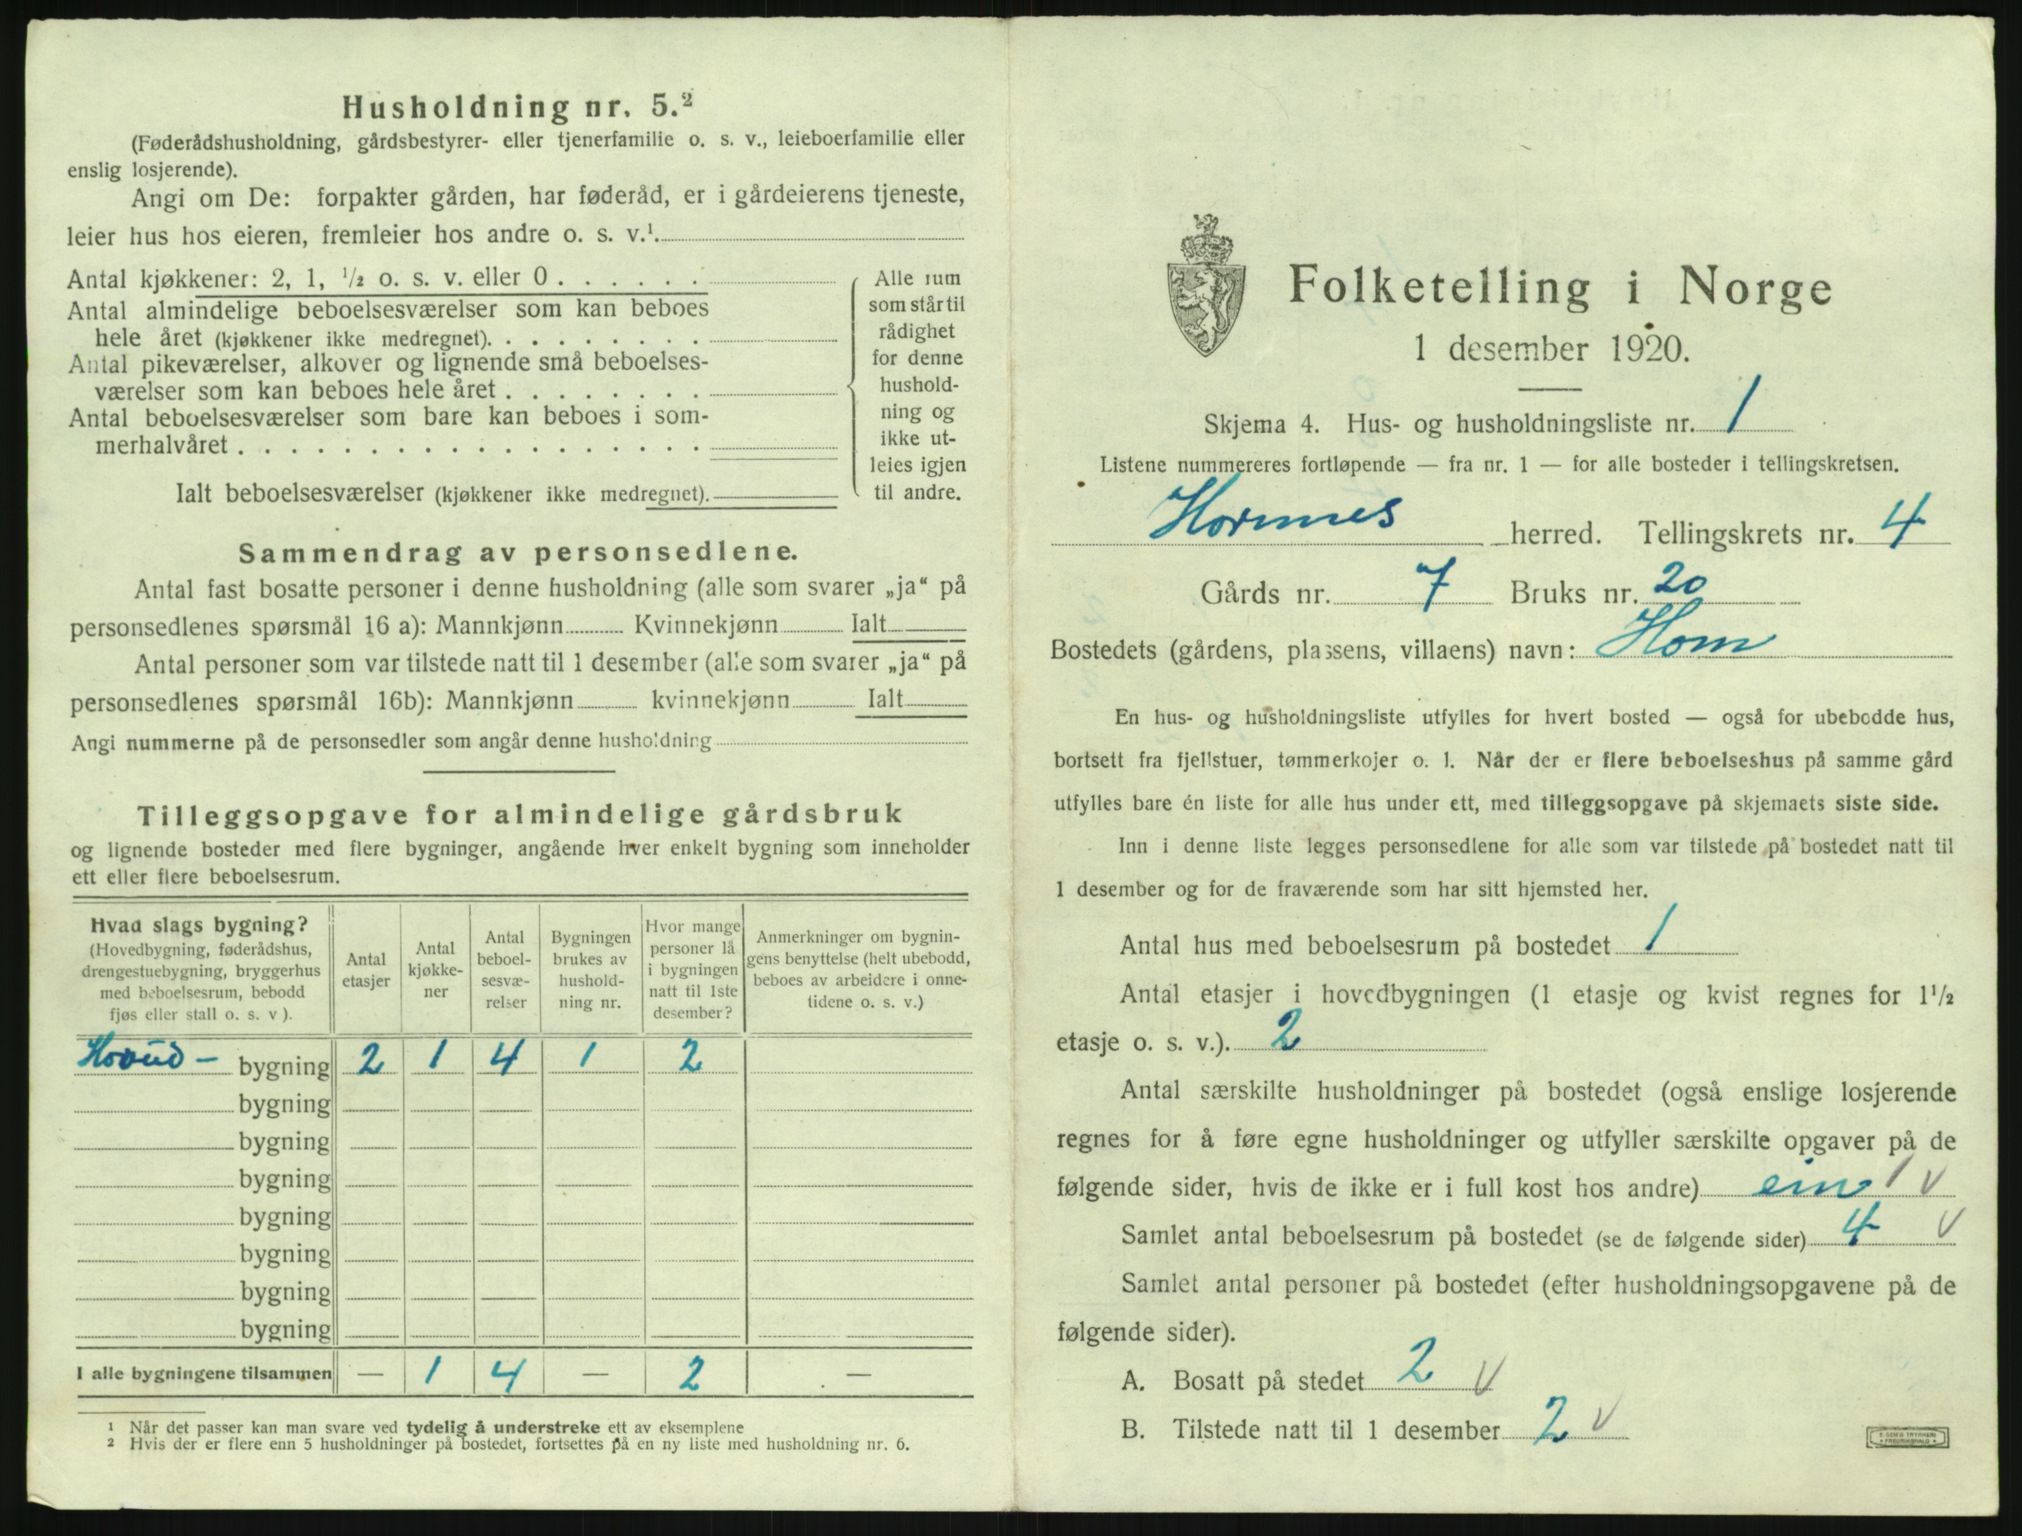 Husholdning nr. 5.²
(Føderådshusholdning, gårdsbestyrer- eller tjenerfamilie o. s. v., leieboerfamilie eller
enslig losjerende).
Angi om De: forpakter gården, har føderåd, er i gårdeierens tjeneste,
leier hus hos eieren, fremleier hos andre o. s. v.¹.
Antal kjøkkener: 2, 1, ½ o. s. v. eller 0 . . . . . .
Antal almindelige beboelsesværelser som kan beboes
hele året (kjøkkener ikke medregnet). . . . . . . . .
Antal pikeværelser, alkover og lignende små beboelses-
værelser som kan beboes hele året . . . . . . . .
Antal beboelsesværelser som bare kan beboes i som-
merhalvåret . . . . . . . . . . . . . . . . . .
Ialt beboelsesværelser (kjøkkener ikke medregnet).
Alle rum
som står til
rådighet
for denne
hushold-
ning og
ikke ut-
leies igjen
til andre.
Sammendrag av personsedlene.
Antal fast bosatte personer i denne husholdning (alle som svarer „ja“ på
personsedlenes spørsmål 16 a): Mannkjønn Kvinnekjønn Ialt
Antal personer som var tilstede natt til 1 desember (alle som svarer „ja“ på
personsedlenes spørsmål 16b): Mannkjønn kvinnekjønn Ialt
Angi nummerne på de personsedler som angår denne husholdning
Tilleggsopgave for almindelige gårdsbruk
og lignende bosteder med flere bygninger, angående hver enkelt bygning som inneholder
ett eller flere beboelsesrum.
Hvad slags bygning?
(Hovedbygning, føderådshus,
drengestuebygning, bryggerhus
med beboelsesrum, bebodd
fjøs eller stall o. s. v ).
Antal
etasjer
Antal
kjøkke-
ner
Antal
beboel-
sesvæ-
relser
Bygningen
brukes av
hushold-
ning nr.
Hvor mange
personer lå
i bygningen
natt til 1ste
desember?
Anmerkninger om bygnin-
gens benyttelse (helt ubebodd,
beboes av arbeidere i onne-
tidene o. s. v.)
Hovud - bygning 2 1 4 1 2
bygning
bygning
bygning
bygning
bygning
bygning
bygning
I alle bygningene tilsammen — 1 4 — 2 —
¹ Når det passer kan man svare ved tydelig å understreke ett av eksemplene
² Hvis der er flere enn 5 husholdninger på bostedet, fortsettes på en ny liste med husholdning nr. 6.
Folketelling i Norge
1 desember 1920.
Skjema 4. Hus- og husholdningsliste nr. 1
Listene nummereres fortløpende — fra nr. 1 — for alle bosteder i tellingskretsen.
Hornnes herred. Tellingskrets nr. 4
Gårds nr. 7 Bruks nr. 20
Bostedets (gårdens, plassens, villaens) navn: Hom
En hus- og husholdningsliste utfylles for hvert bosted — også for ubebodde hus,
bortsett fra fjellstuer, tømmerkojer o. l. Når der er flere beboelseshus på samme gård
utfylles bare én liste for alle hus under ett, med tilleggsopgave på skjemaets siste side.
Inn i denne liste legges personsedlene for alle som var tilstede på bostedet natt til
1 desember og for de fraværende som har sitt hjemsted her.
Antal hus med beboelsesrum på bostedet 1
Antal etasjer i hovedbygningen (1 etasje og kvist regnes for 1½
etasje o. s. v.). 2
Antal særskilte husholdninger på bostedet (også enslige losjerende
regnes for å føre egne husholdninger og utfyller særskilte opgaver på de
følgende sider, hvis de ikke er i full kost hos andre) ein 1 v
Samlet antal beboelsesrum på bostedet (se de følgende sider) 4 v
Samlet antal personer på bostedet (efter husholdningsopgavene på de
følgende sider).
A. Bosatt på stedet 2 v
B. Tilstede natt til 1 desember 2 v